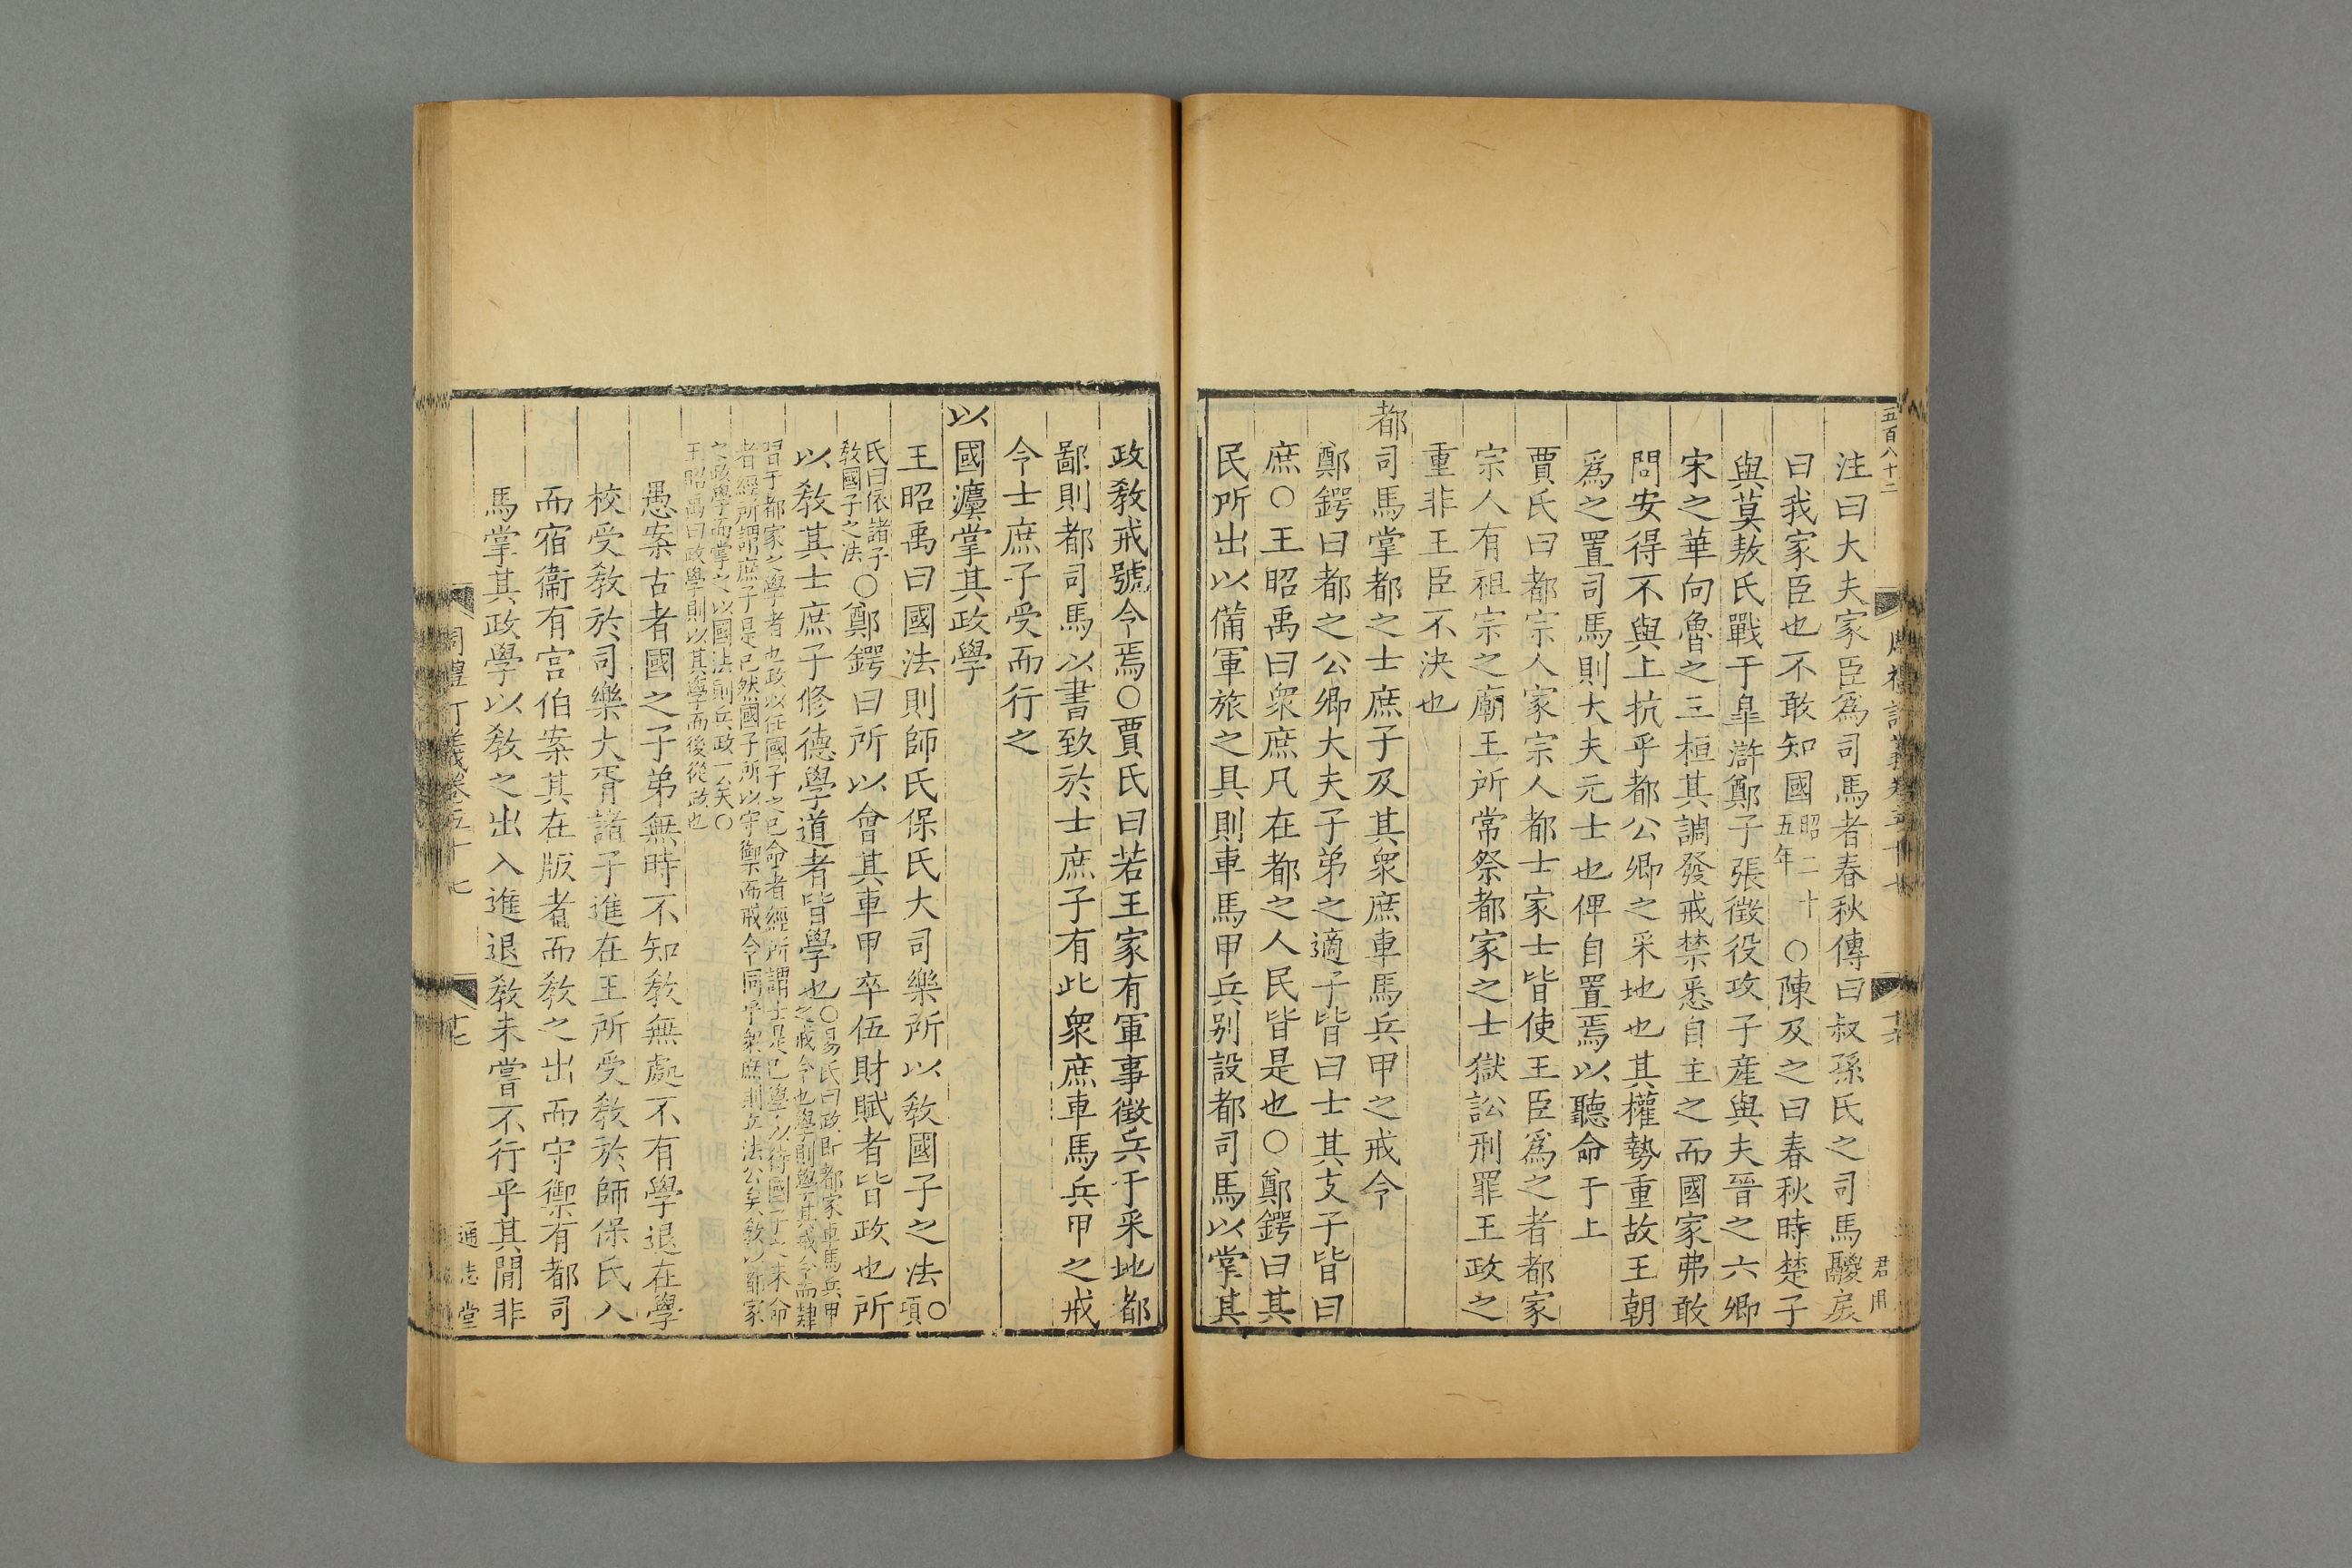 五百八十二
注曰大夫家臣爲司馬者春秋傳曰叔孫氏之司馬鬷戾
曰我家臣也不敢知國昭二十五年○陳及之曰春秋時楚子
與莫敖氏戰于皐滸鄭子張徵役攻子產與夫晉之六卿
宋之華向魯之三桓其調發戒禁悉自主之而國家弗敢
問安得不與上抗乎都公卿之采地也其權勢重故王朝
爲之置司馬則大夫元士也俾自置焉以聽命于上
賈氏曰都宗人家宗人都士家士皆使王臣爲之者都家
宗人有祖宗之廟王所常祭都家之士獄訟刑罪王政之
重非王臣不決也
都司馬掌都之士庶子及其衆庶車馬兵甲之戒令
鄭鍔曰都之公卿大夫子弟之適子皆曰士其支子皆曰
庶○王昭禹曰衆庶凡在都之人民皆是也○鄭鍔曰其
民所出以備軍旅之具則車馬甲兵别設都司馬以掌其
政敎戒號令焉○賈氏曰若王家有軍事徵兵于采地都
鄙則都司馬以書致於士庶子有此衆庶車馬兵甲之戒
令士庶子受而行之
以國灋掌其政學
王昭禹曰國法則師氏保氏大司樂所以敎國子之法○項
氏曰依諸子
敎國子之法○鄭鍔曰所以會其車甲卒伍財賦者皆政也所
以敎其士庶子修德學道者皆學也○易氏曰政即都家車馬兵甲
之戒令也學則學其戒令而肄
習于都家之學者也政以任國子之已命者經所謂士是已學以待國子之未命
者經所謂庶子是已然國子所以守禦而戒令同乎衆庶則兵法公矣敎以都家
之政學而掌之以國法則兵政一矣○
王昭禹曰政學則以其學而後從政也
愚案古者國之子弟無時不知敎無處不有學退在學
校受敎於司樂大胥諸子進在王所受敎於師保氏入
而宿衞有宫伯案其在版者而敎之出而守禦有都司
馬掌其政學以敎之出入進退敎未嘗不行乎其閒非
周禮訂義卷五十七
通志堂